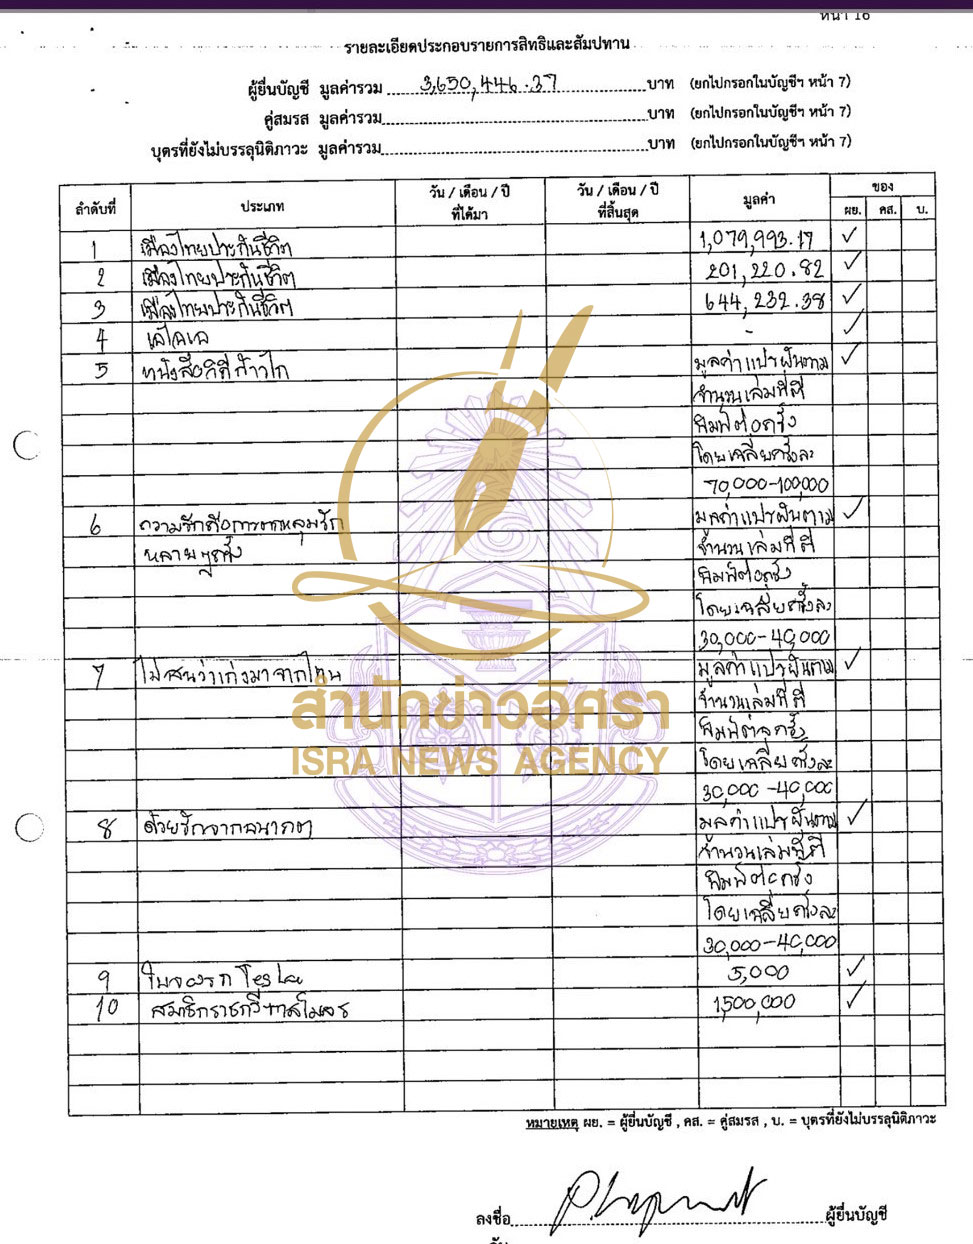 หน้า 16
รายละเอียดประกอบรายการสิทธิและสัมปทาน
ผู้ยื่นบัญชี มูลค่ารวม 3,650,446.37 บาท (ยกไปกรอกในบัญชีฯ หน้า 7)
คู่สมรส มูลค่ารวม บาท (ยกไปกรอกในบัญชีฯ หน้า 7)
บุตรที่ยังไม่บรรลุนิติภาวะ มูลค่ารวม บาท (ยกไปกรอกในบัญชีฯ หน้า 7)
ลำดับที่ ประเภท วัน / เดือน / ปี ที่ได้มา วัน / เดือน / ปี ที่สิ้นสุด มูลค่า ของ
ผย. คส. บ.
1 เมืองไทยประกันชีวิต 1,079,993.17 ✓
2 เมืองไทยประกันชีวิต 201,220.82 ✓
3 เมืองไทยประกันชีวิต 644,232.38 ✓
4 - ✓
5 หนังสือวิถีก้าวไกล มูลค่าแปรผันตาม ✓
จำนวนเล่มที่ตี
พิมพ์ต่อครั้ง
โดยเฉลี่ยครั้งละ
70,000-100,000
6 ความรักคือการตกหลุมรัก มูลค่าแปรผันตาม ✓
หลายๆครั้ง จำนวนเล่มที่ตี
พิมพ์ต่อครั้ง
โดยเฉลี่ยครั้งละ
30,000-40,000
7 ไม่สนว่าเก่งมาจากไหน มูลค่าแปรผันตาม ✓
จำนวนเล่มที่ตี
พิมพ์ต่อครั้ง
โดยเฉลี่ยครั้งละ
30,000-40,000
8 ด้วยรักจากอนาคต มูลค่าแปรผันตาม ✓
จำนวนเล่มที่ตี
พิมพ์ต่อครั้ง
โดยเฉลี่ยครั้งละ
30,000-40,000
9 ใบจองรถ Tesla 5,000 ✓
10 สมาชิกราชกรีฑาสโมสร 1,500,000 ✓
สำนักข่าวอิศรา
ISRA NEWS AGENCY
หมายเหตุ ผย. = ผู้ยื่นบัญชี , คส. = คู่สมรส , บ. = บุตรที่ยังไม่บรรลุนิติภาวะ
ลงชื่อ ผู้ยื่นบัญชี